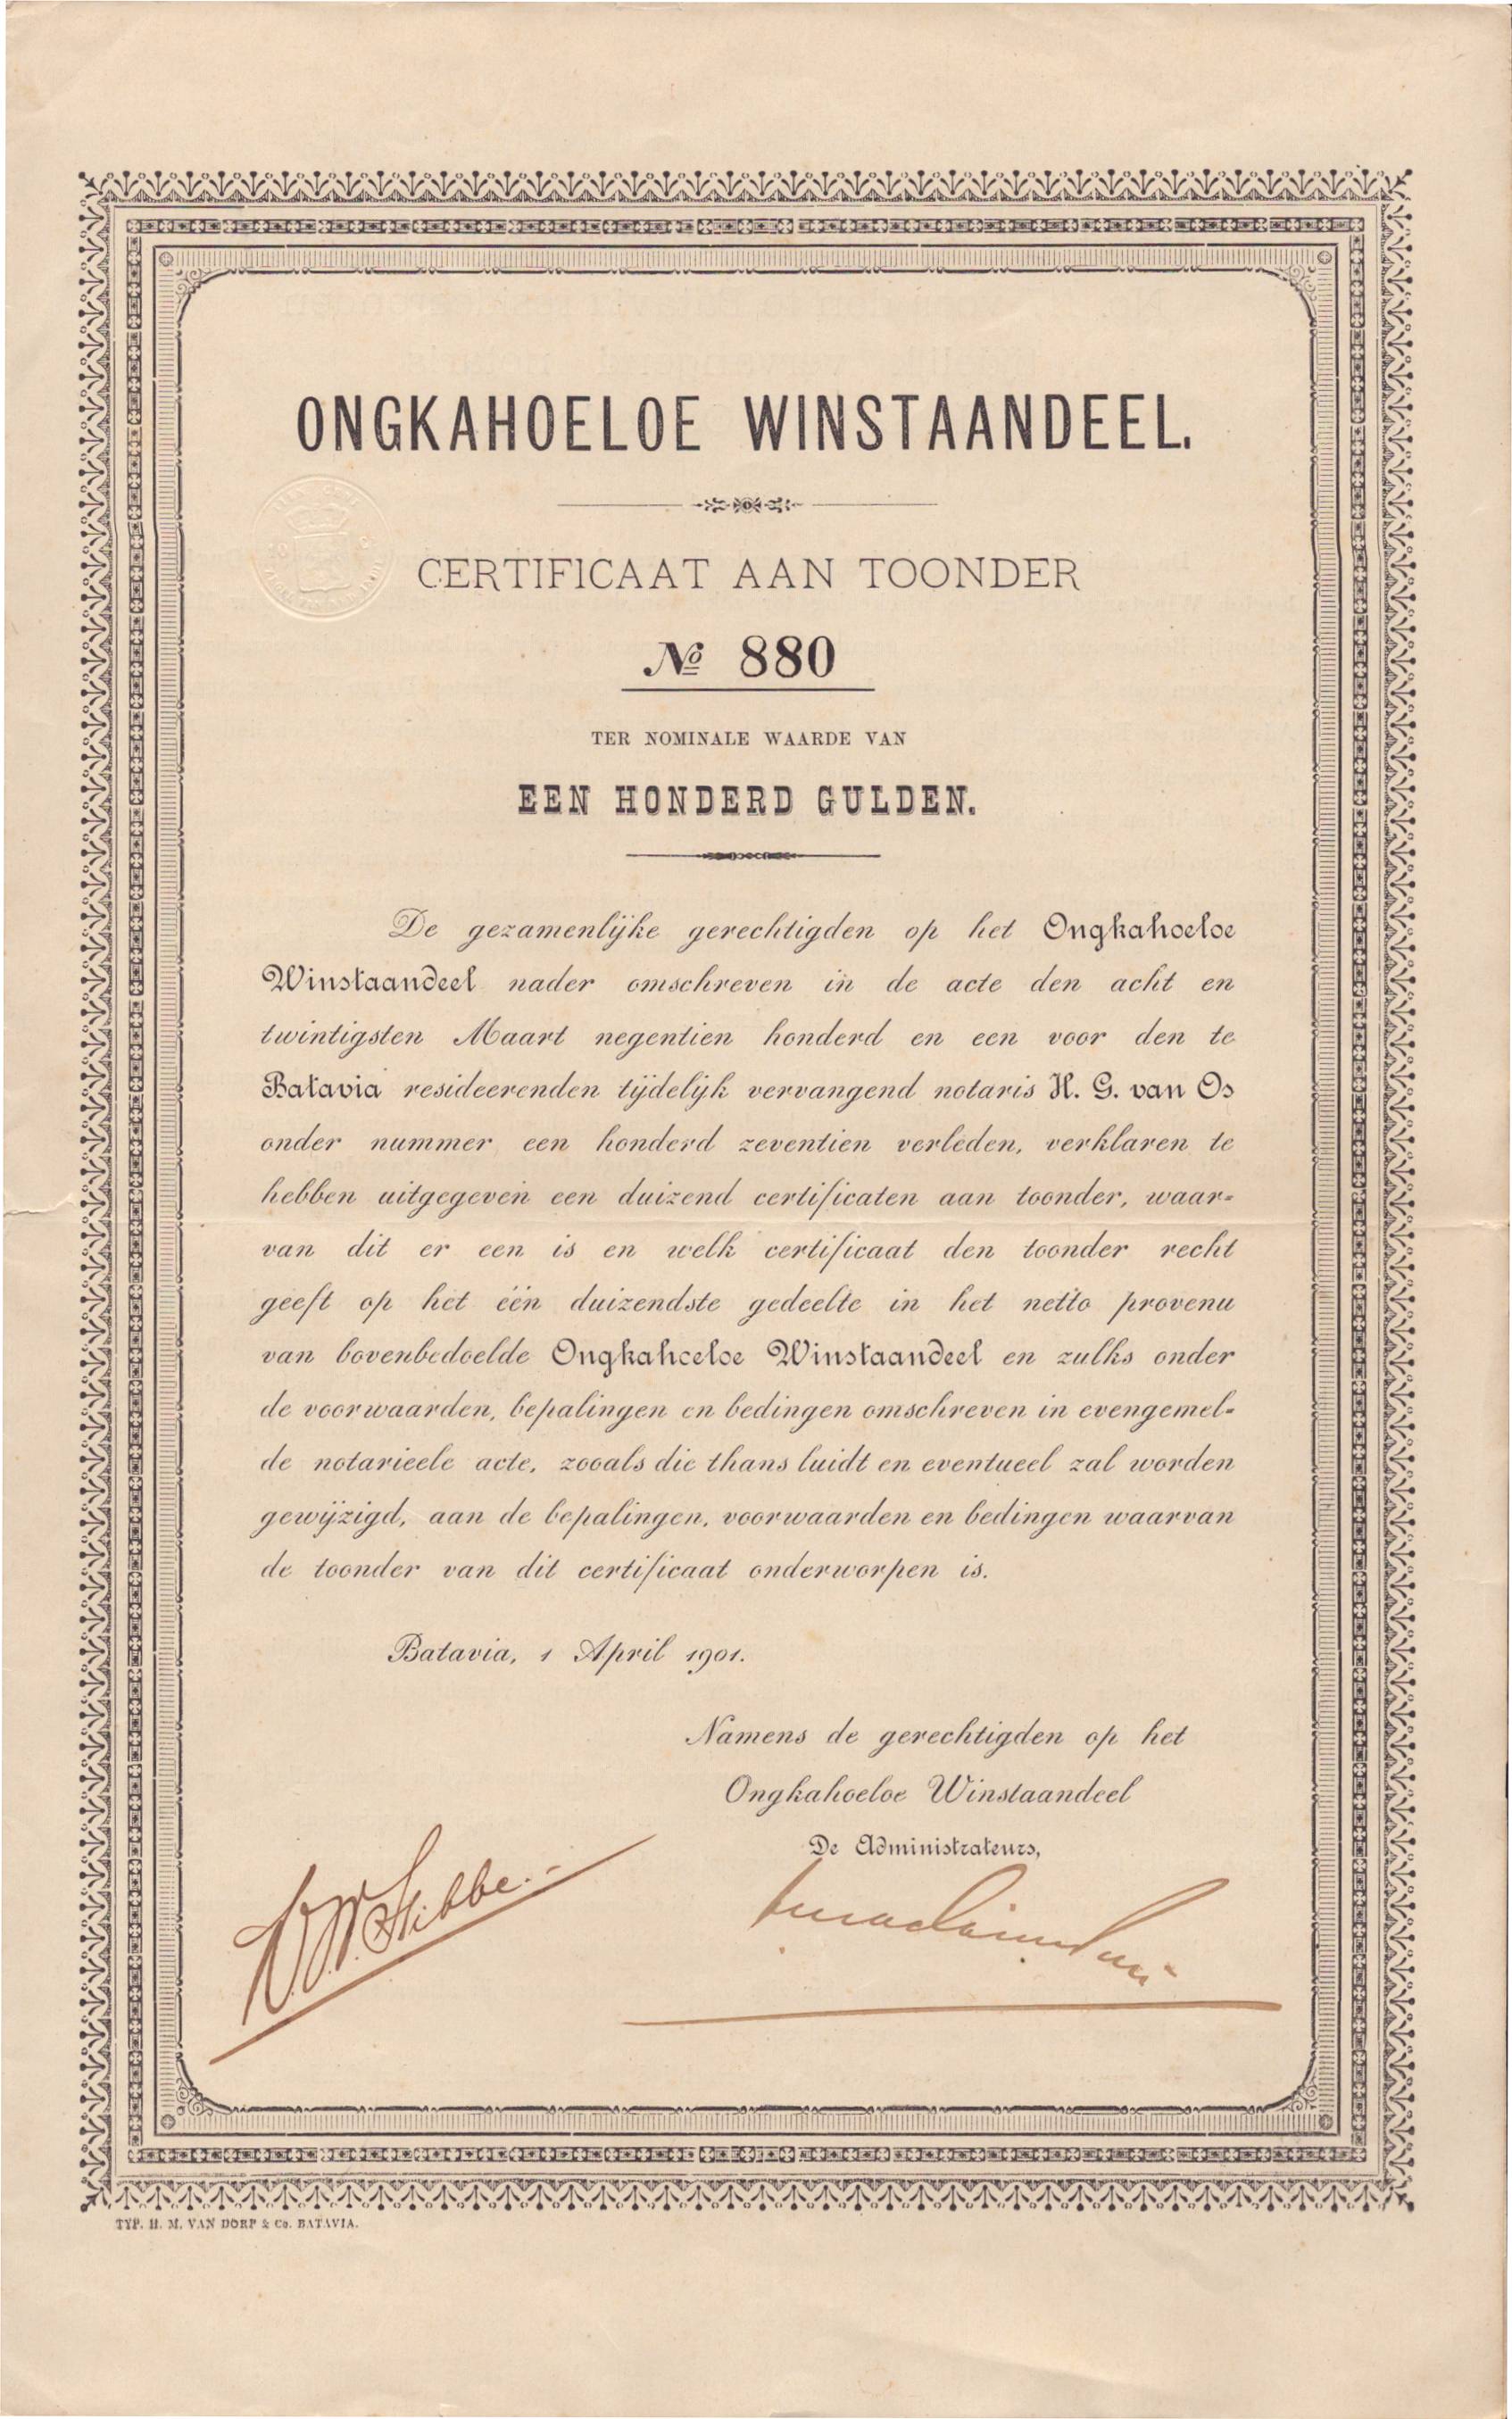 ONGKAHOELOE WINSTAANDEEL.
CERTIFICAAT AAN TOONDER
No 880
TER NOMINALE WAARDE VAN
EEN HONDERD GULDEN.
De gezamenlijke gerechtigden op het Ongkahoeloe
Winstaandeel nader omschreven in de acte den acht en
twintigsten Maart negentien honderd en een voor den te
Batavia resideerenden tijdelijk vervangend notaris H. G. van Os
onder nummer een honderd zeventien verleden, verklaren te
hebben uitgegeven een duizend certificaten aan toonder, waar-
van dit er een is en welk certificaat den toonder recht
geeft op het één duizendste gedeelte in het netto provenu
van bovenbedoelde Ongkahoeloe Winstaandeel en zulks onder
de voorwaarden, bepalingen en bedingen omschreven in evengemel-
de notarieele acte, zooals die thans luidt en eventueel zal worden
gewijzigd, aan de bepalingen, voorwaarden en bedingen waarvan
de toonder van dit certificaat onderworpen is.
Batavia, 1 April 1901.
Namens de gerechtigden op het
Ongkahoeloe Winstaandeel
De Administrateurs,
Stibbe
TYP. H. M. VAN DORP & Co. BATAVIA.